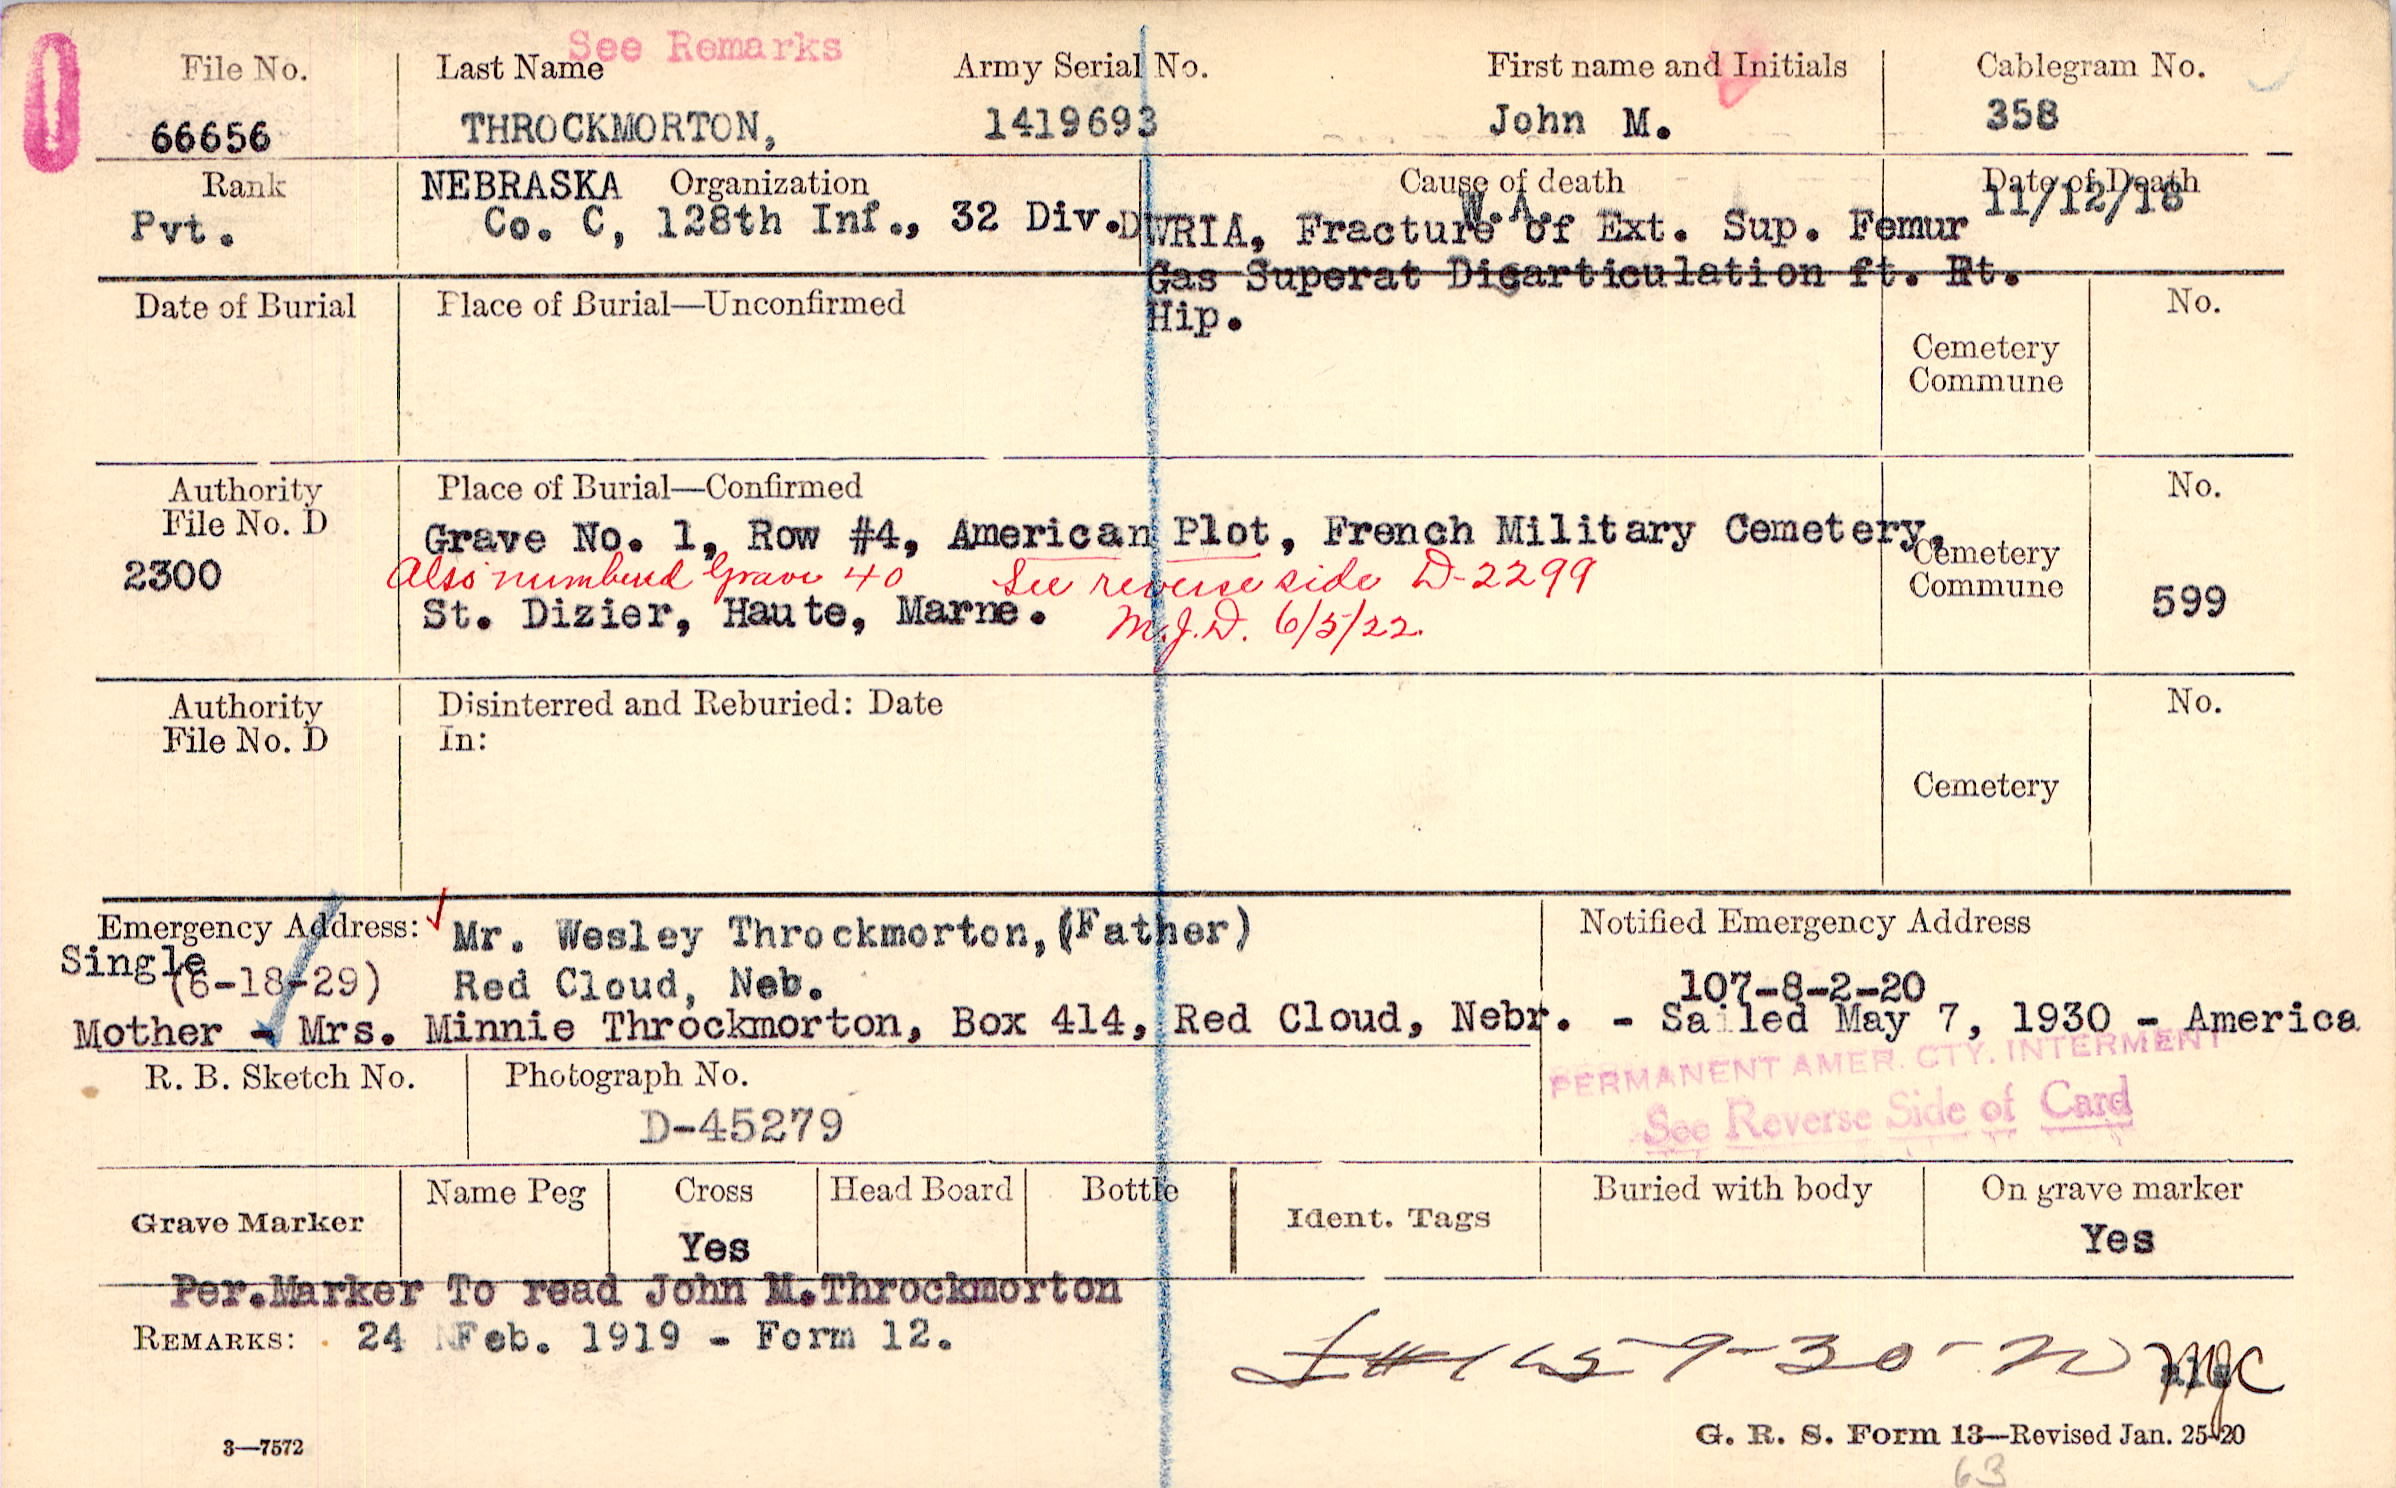 See Remarks
File No. Last Name Army Serial No. First name and Initials Cablegram No.
66656 THROCKMORTON, 1419693 John M. 358
Rank NEBRASKA Organization Cause of death Date of Death
W.A. 11/12/18
Pvt. Co. C, 128th Inf., 32 Div. DWRIA, Fracture of Ext. Sup. Femur
Gas Superat Disarticulation ft. Rt.
Hip.
Date of Burial Place of Burial—Unconfirmed No.
Cemetery
Commune
Authority Place of Burial—Confirmed No.
File No. D
Grave No. 1, Row #4, American Plot, French Military Cemetery,
Cemetery
2300 Also numbered Grave 40 See reverse side D-2299
Commune 599
St. Dizier, Haute, Marne. M.J.D. 6/5/22.
Authority Disinterred and Reburied: Date No.
File No. D In:
Cemetery
Emergency Address: Mr. Wesley Throckmorton, (Father) Notified Emergency Address
Single
(6-18-29) Red Cloud, Neb. 107-8-2-20
Mother - Mrs. Minnie Throckmorton, Box 414, Red Cloud, Nebr. - Sailed May 7, 1930 - America
PERMANENT AMER. CTY. INTERMENT
R. B. Sketch No. Photograph No.
See Reverse Side of Card
D-45279
Name Peg Cross Head Board Bottle Buried with body On grave marker
Grave Marker Ident. Tags
Yes Yes
Per. Marker To read John M. Throckmorton
REMARKS: 24 Feb. 1919 - Form 12.
9-30-20 MJC
3—7572 G. R. S. Form 13—Revised Jan. 25-20
63